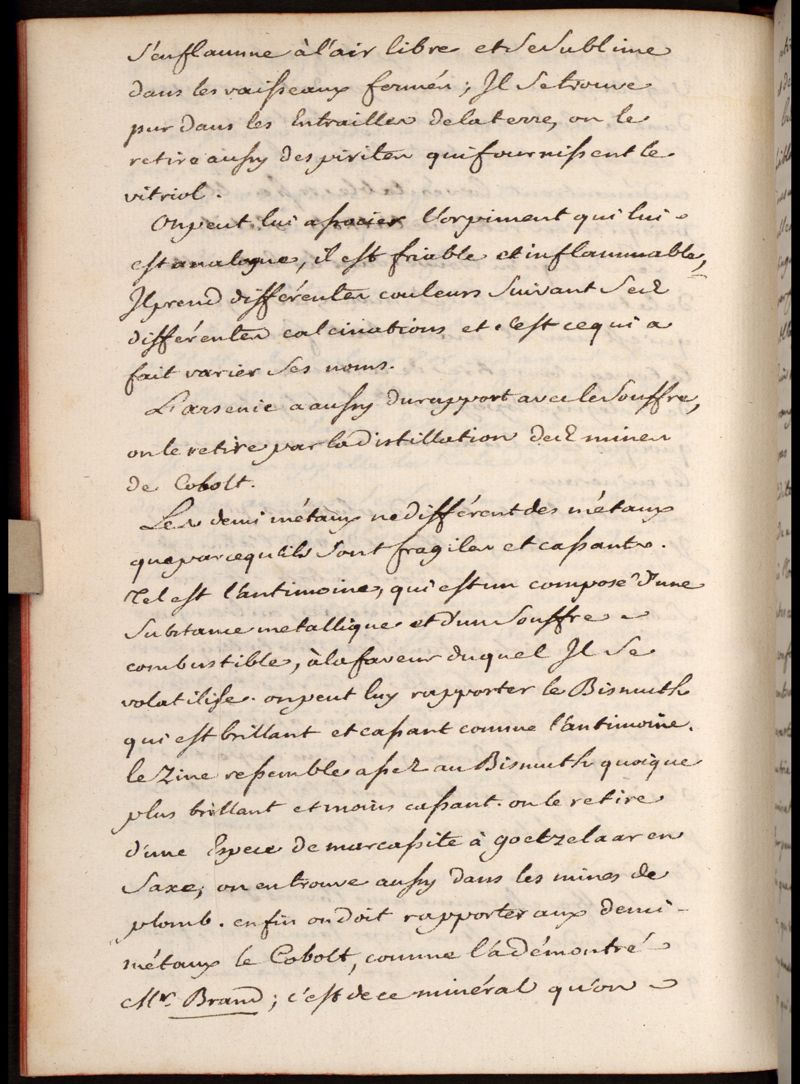 s'enflamme à l'air libre et se sublime
dans les vaisseaux fermés; Il se trouve
pur dans les Entrailles de la terre, on le
retire aussy des pirites qui fournissent le
vitriol.
On peut lui associer l'orpiment qui lui
est analogue, il est friable et inflammable,
Il prend différentes couleurs suivant sez
différentes calcinations et c'est ce qui a
fait varier ses noms.
L'arsenic a aussy du rapport avec le souffre,
on le retire par la distillation dez mines
de Cobolt.
Les demi métaux ne différent des métaux
que parcequ'ils sont fragiles et cassants.
Tel est l'antimoine, qui est un composé d'une
substance metallique et d'un souffre
combustible, à la faveur duquel Il se
volatilise. on peut luy rapporter le Bismuth
qui est brillant et cassant comme l'antimoine.
le Zinc ressemble assez au Bismuth quoique
plus brillant et moins cassant. on le retire
d'une Espece de marcassite à goetzelaar en
Saxe; on en trouve aussy dans les mines de
plomb. enfin on doit rapporter aux demi-
métaux le Cobolt, comme l'a démontré
Mr. Brand; c'est de ce minéral qu'on